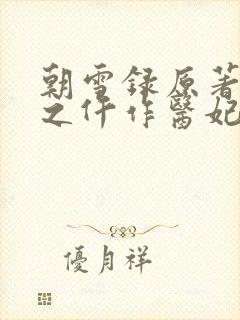 朝雪録原著
之仵作醫妃
優月祥